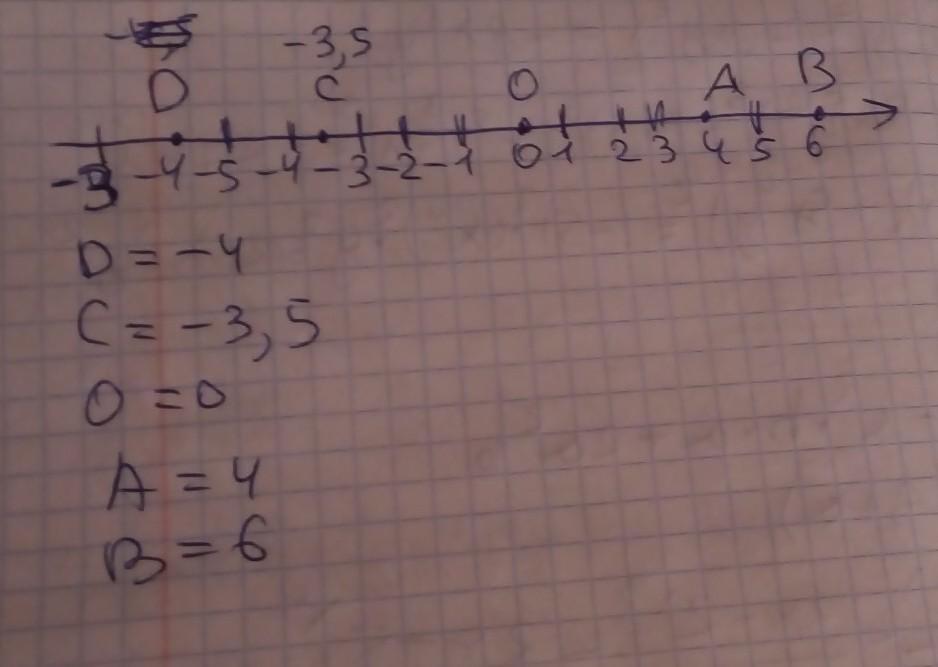 -3,5
D C O A B
-4 -5 -4 -3 -2 -1 0 1 2 3 4 5 6
D = -4
C = -3,5
O = 0
A = 4
B = 6